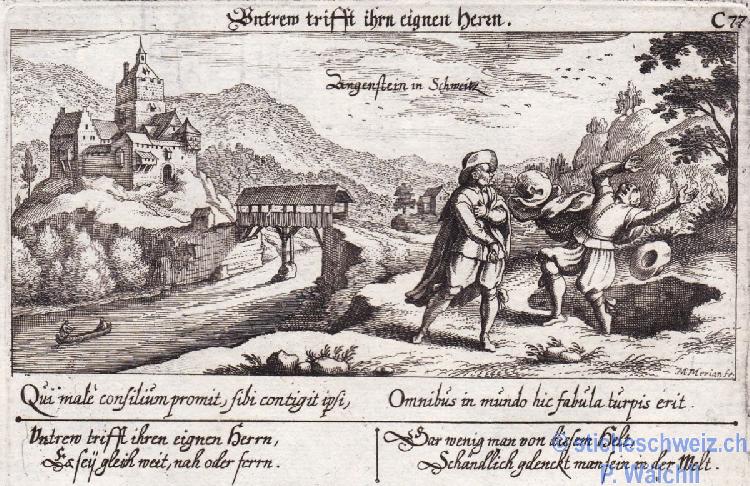 Untrew trifft ihrn eignen Herrn.
C 77
Angenstein in Schweitz
M. Merian fe.
Qui malè consilium promit, sibi contigit ipsi,
Omnibus in mundo hic fabula turpis erit.
Untrew trifft ihren eignen Herrn,
Es seÿ gleich weit, nah oder ferrn.
Gar wenig man von diesem Helt,
Schändlich gdenckt man sein in der Welt.
©sticheschweiz.ch
P. Walchli